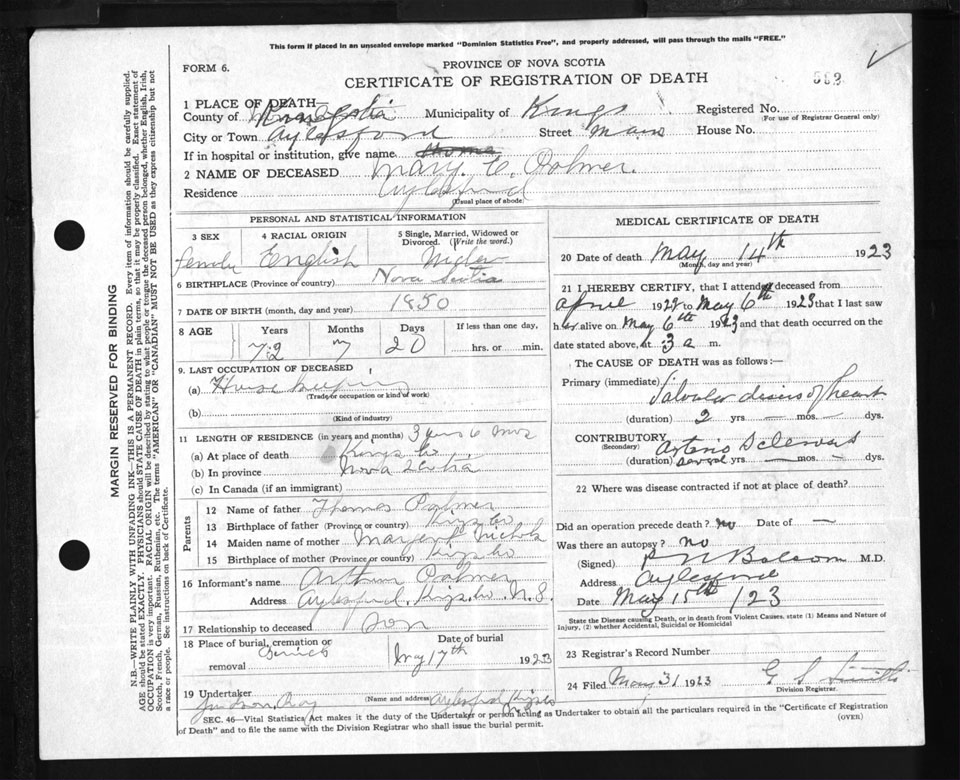 This form if placed in an unsealed envelope marked "Dominion Statistics Free", and properly addressed, will pass through the mails "FREE."
FORM 6.
PROVINCE OF NOVA SCOTIA
CERTIFICATE OF REGISTRATION OF DEATH
1 PLACE OF DEATH—
County of Municipality of Kings Registered No.
(For use of Registrar General only)
City or Town Aylesford Street Main House No.
If in hospital or institution, give name Home
2 NAME OF DECEASED Mary. C. Palmer.
Residence Aylesford
(Usual place of abode)
PERSONAL AND STATISTICAL INFORMATION
3 SEX 4 RACIAL ORIGIN 5 Single, Married, Widowed or Divorced. (Write the word.)
female English
6 BIRTHPLACE (Province or country) Nova Scotia
7 DATE OF BIRTH (month, day and year) 1850
8 AGE Years Months Days If less than one day,
72 7 20 hrs. or min.
9. LAST OCCUPATION OF DECEASED
(a) House keeping
(Trade or occupation or kind of work)
(b)
(Kind of industry)
11 LENGTH OF RESIDENCE (in years and months) 3 years 6 mos
(a) At place of death Kings Co
(b) In province Nova Scotia
(c) In Canada (if an immigrant)
Parents
12 Name of father Thomas Palmer
13 Birthplace of father (Province or country) Kings Co
14 Maiden name of mother Margaret Nichols
15 Birthplace of mother (Province or country) Kings Co
16 Informant's name Arthur Palmer
Address Aylesford, Kings Co. N.S.
17 Relationship to deceased Son
18 Place of burial, cremation or removal Berwick Date of burial May 17th 1923
19 Undertaker (Name and address) Aylesford Kings Co
MEDICAL CERTIFICATE OF DEATH
20 Date of death May 14th 1923
(Month, day and year)
21 I HEREBY CERTIFY, that I attended deceased from
April 1923 to May 6th 1923 that I last saw
her alive on May 6th 1923 and that death occurred on the
date stated above, at 3 a m.
The CAUSE OF DEATH was as follows:—
Primary (immediate) Valvular diseas of heart
(duration) 2 yrs — mos. — dys.
CONTRIBUTORY Arterio
(Secondary)
(duration) several yrs — mos — dys.
22 Where was disease contracted if not at place of death?
Did an operation precede death? no Date of —
Was there an autopsy? no
(Signed) M.D.
Address Aylesford
Date May 15th /23
State the Disease causing Death, or in death from Violent Causes, state (1) Means and Nature of Injury, (2) whether Accidental, Suicidal or Homicidal
23 Registrar's Record Number
24 Filed May 31 1923 G S Smith
Division Registrar.
SEC. 46—Vital Statistics Act makes it the duty of the Undertaker or person acting as Undertaker to obtain all the particulars required in the "Certificate of Registration
of Death" and to file the same with the Division Registrar who shall issue the burial permit.
(OVER)
MARGIN RESERVED FOR BINDING
N.B.—WRITE PLAINLY WITH UNFADING INK—THIS IS A PERMANENT RECORD. Every item of information should be carefully supplied.
AGE should be stated EXACTLY. PHYSICIANS should STATE CAUSE OF DEATH in plain terms, so that it may be properly classified. Exact statement of
OCCUPATION is very important. RACIAL ORIGIN will be described by stating to what people or tongue the deceased person belonged, whether English, Irish,
Scotch, French, German, Russian, Ruthenian, etc. The terms "AMERICAN" or "CANADIAN" MUST NOT BE USED as they express citizenship but not
a race or people. See instructions on back of Certificate.